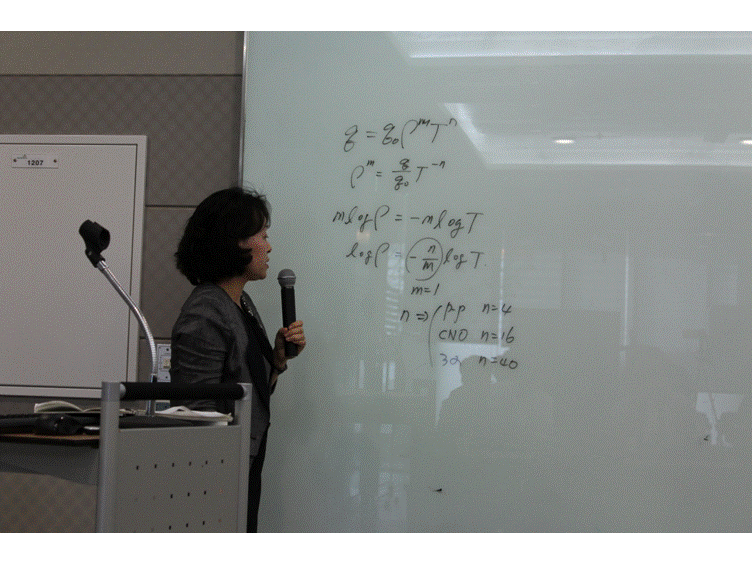 1207
q = q₀ρᵐTⁿ
ρᵐ = q/q₀ T⁻ⁿ
m log ρ = -n log T
log ρ = (-n/m) log T
m=1
n ⇒ ( p-p n=4
CNO n=16
3α n=40